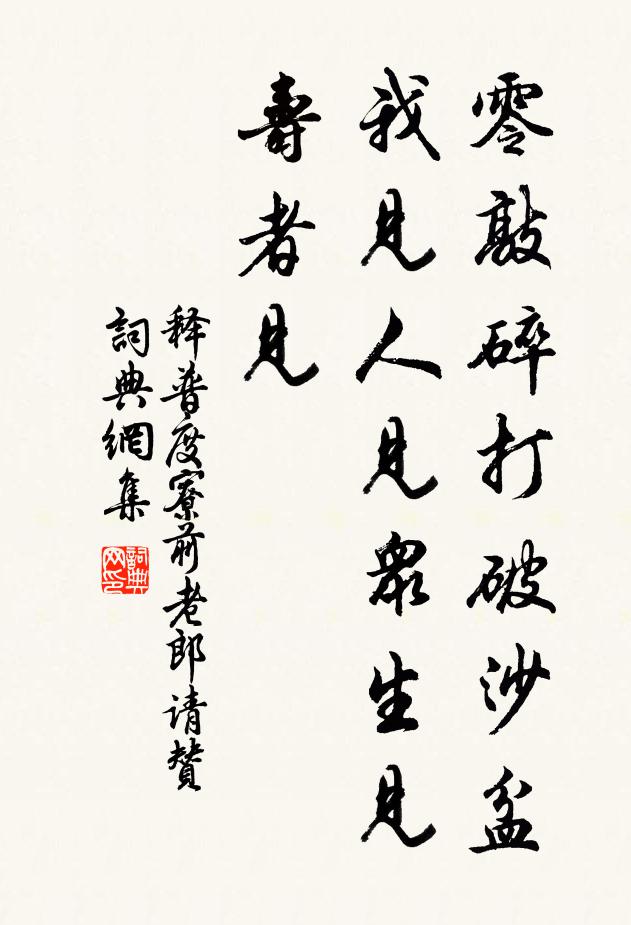 零敲碎打破沙盆
我見人見衆生見
壽者見
释普度寮前老郎请赞
詞典網集
詞典网印